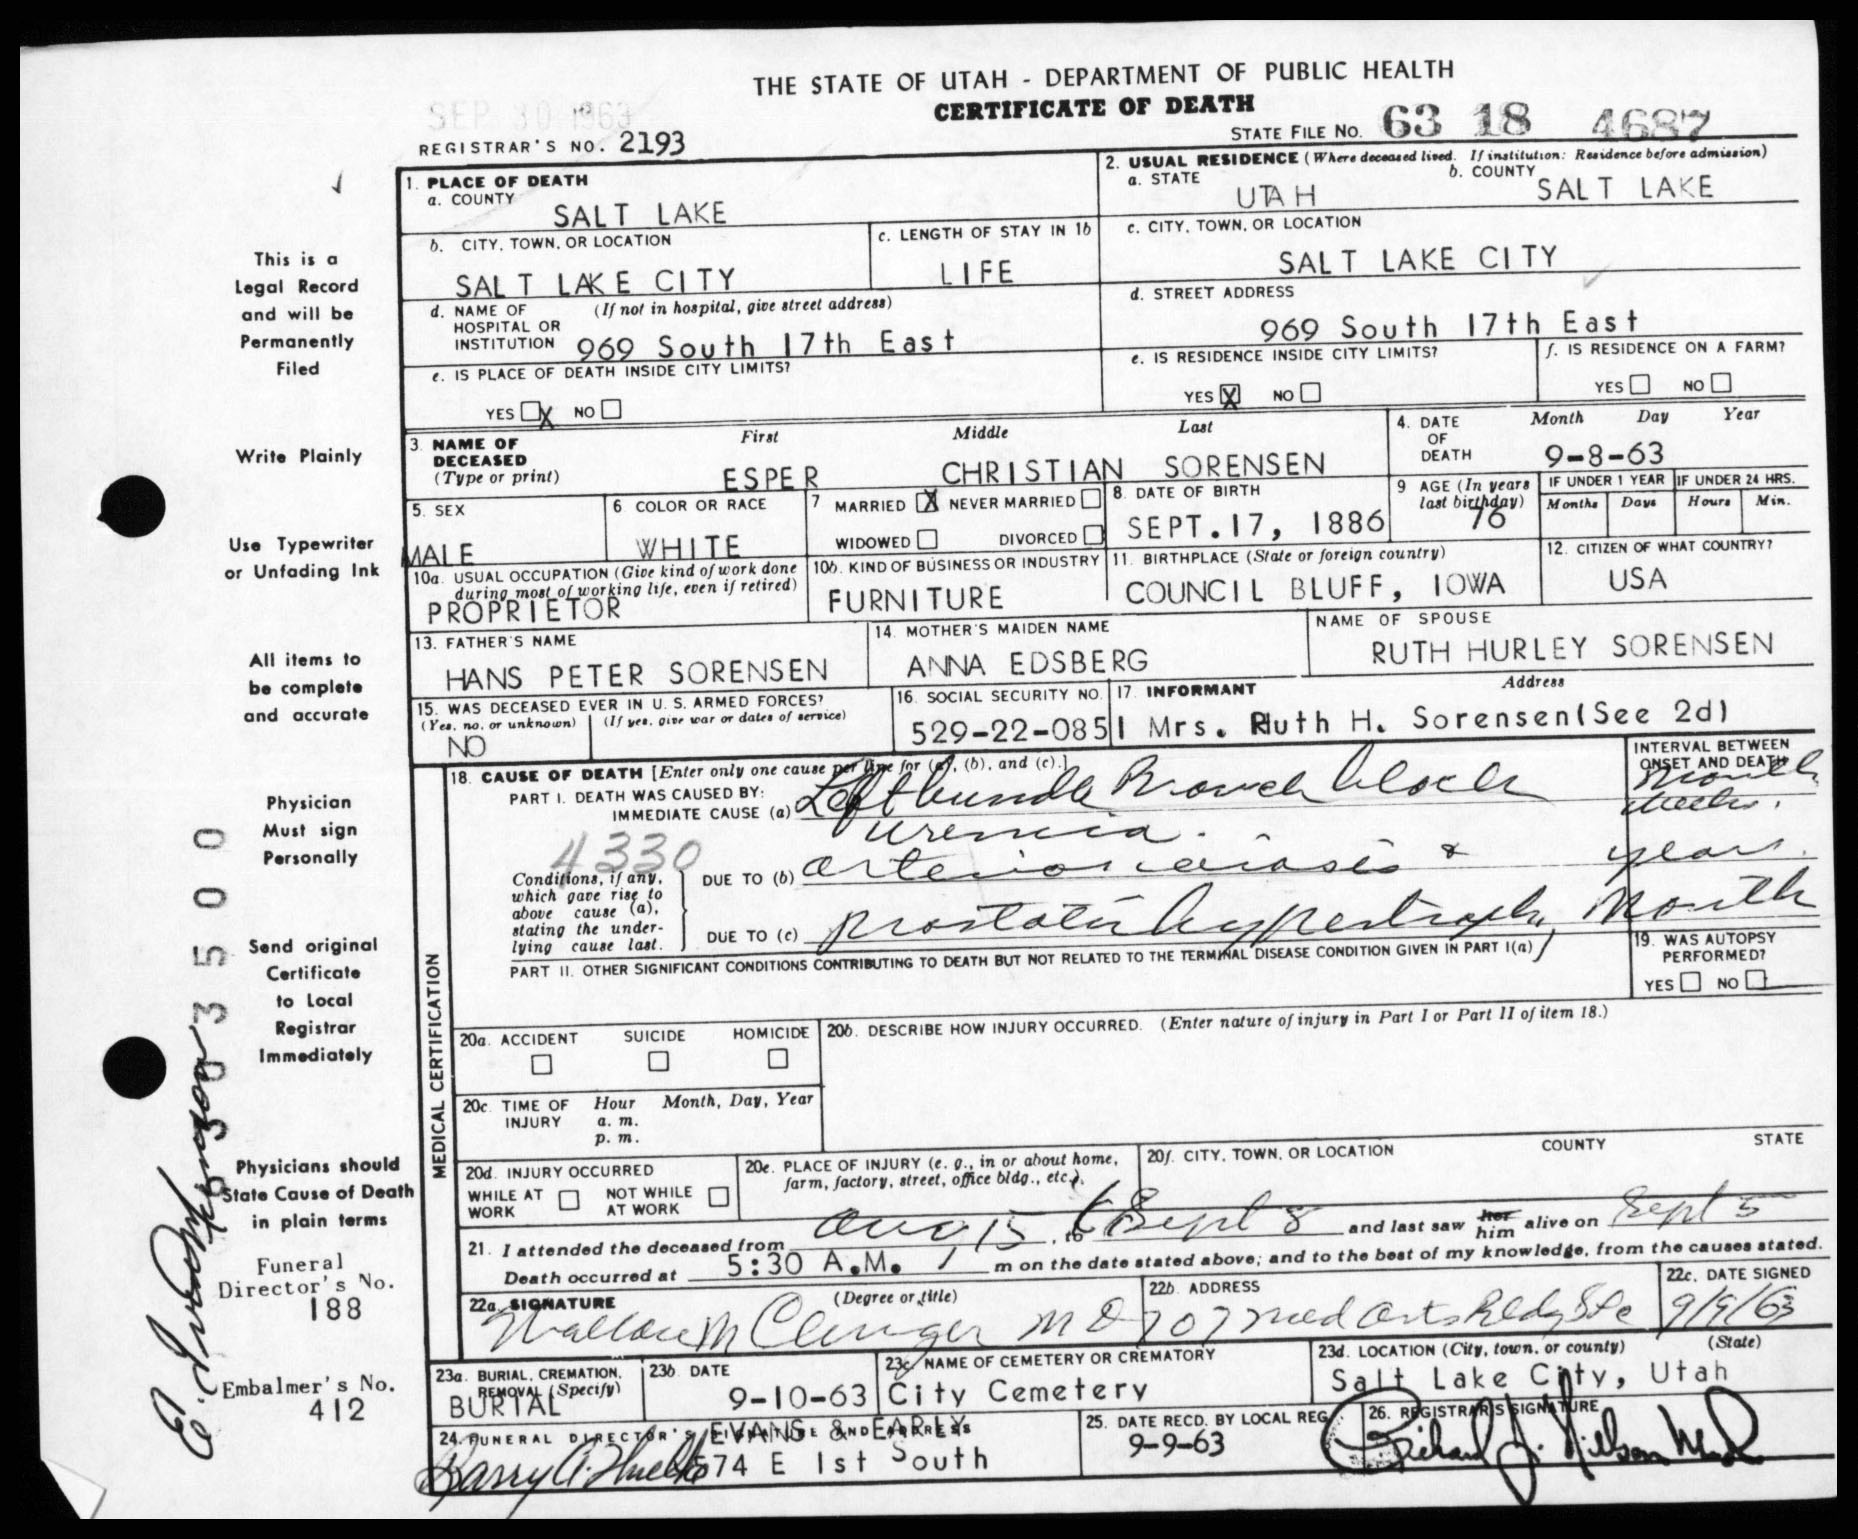 THE STATE OF UTAH - DEPARTMENT OF PUBLIC HEALTH
CERTIFICATE OF DEATH
SEP 30 1963
REGISTRAR'S NO. 2193
STATE FILE NO. 63 18 4687
1. PLACE OF DEATH
a. COUNTY
SALT LAKE
2. USUAL RESIDENCE (Where deceased lived. If institution: Residence before admission)
a. STATE
UTAH
b. COUNTY
SALT LAKE
b. CITY, TOWN, OR LOCATION
SALT LAKE CITY
c. LENGTH OF STAY IN 1b
LIFE
c. CITY, TOWN, OR LOCATION
SALT LAKE CITY
d. NAME OF HOSPITAL OR INSTITUTION (If not in hospital, give street address)
969 South 17th East
d. STREET ADDRESS
969 South 17th East
e. IS PLACE OF DEATH INSIDE CITY LIMITS?
YES X NO
e. IS RESIDENCE INSIDE CITY LIMITS?
YES X NO
f. IS RESIDENCE ON A FARM?
YES NO
3. NAME OF DECEASED (Type or print)
First Middle Last
ESPER CHRISTIAN SORENSEN
4. DATE OF DEATH
Month Day Year
9-8-63
5. SEX
MALE
6 COLOR OR RACE
WHITE
7 MARRIED X NEVER MARRIED
WIDOWED DIVORCED
8. DATE OF BIRTH
SEPT. 17, 1886
9 AGE (In years last birthday)
76
IF UNDER 1 YEAR
Months Days
IF UNDER 24 HRS.
Hours Min.
10a. USUAL OCCUPATION (Give kind of work done during most of working life, even if retired)
PROPRIETOR
10b. KIND OF BUSINESS OR INDUSTRY
FURNITURE
11. BIRTHPLACE (State or foreign country)
COUNCIL BLUFF, IOWA
12. CITIZEN OF WHAT COUNTRY?
USA
13. FATHER'S NAME
HANS PETER SORENSEN
14. MOTHER'S MAIDEN NAME
ANNA EDSBERG
NAME OF SPOUSE
RUTH HURLEY SORENSEN
15. WAS DECEASED EVER IN U. S. ARMED FORCES?
(Yes, no, or unknown) (If yes, give war or dates of service)
NO
16. SOCIAL SECURITY NO.
529-22-0851
17. INFORMANT Address
Mrs. Ruth H. Sorensen(See 2d)
MEDICAL CERTIFICATION
18. CAUSE OF DEATH [Enter only one cause per line for (a), (b), and (c).]
INTERVAL BETWEEN ONSET AND DEATH
PART I. DEATH WAS CAUSED BY:
IMMEDIATE CAUSE (a) Left bundle Branch block
month
uremia. weeks.
4330
Conditions, if any, which gave rise to above cause (a), stating the underlying cause last.
DUE TO (b) arteriosclerosis & years.
DUE TO (c) prostatic hypertrophy month
PART II. OTHER SIGNIFICANT CONDITIONS CONTRIBUTING TO DEATH BUT NOT RELATED TO THE TERMINAL DISEASE CONDITION GIVEN IN PART I(a)
19. WAS AUTOPSY PERFORMED?
YES NO
20a. ACCIDENT SUICIDE HOMICIDE
20b. DESCRIBE HOW INJURY OCCURRED. (Enter nature of injury in Part I or Part II of item 18.)
20c. TIME OF INJURY
Hour Month, Day, Year
a. m.
p. m.
20d. INJURY OCCURRED
WHILE AT WORK NOT WHILE AT WORK
20e. PLACE OF INJURY (e. g., in or about home, farm, factory, street, office bldg., etc.).
20f. CITY, TOWN, OR LOCATION COUNTY STATE
21. I attended the deceased from Aug 15, to Sept 8 and last saw her him alive on Sept 5
Death occurred at 5:30 A.M. m on the date stated above; and to the best of my knowledge, from the causes stated.
22a. SIGNATURE (Degree or title)
Wallace M Clinger MD
22b. ADDRESS
707 Med Arts Bldg Slc
22c. DATE SIGNED
9/9/63
23a. BURIAL, CREMATION, REMOVAL (Specify)
BURIAL
23b. DATE
9-10-63
23c. NAME OF CEMETERY OR CREMATORY
City Cemetery
23d. LOCATION (City, town, or county) (State)
Salt Lake City, Utah
24. FUNERAL DIRECTOR'S SIGNATURE AND ADDRESS
EVANS & EARLY
574 E 1st South
25. DATE RECD. BY LOCAL REG.
9-9-63
26. REGISTRAR'S SIGNATURE
Richard J. Nilson
This is a
Legal Record
and will be
Permanently
Filed
Write Plainly
Use Typewriter
or Unfading Ink
All items to
be complete
and accurate
Physician
Must sign
Personally
Send original
Certificate
to Local
Registrar
Immediately
Physicians should
State Cause of Death
in plain terms
Funeral
Director's No.
188
Embalmer's No.
412